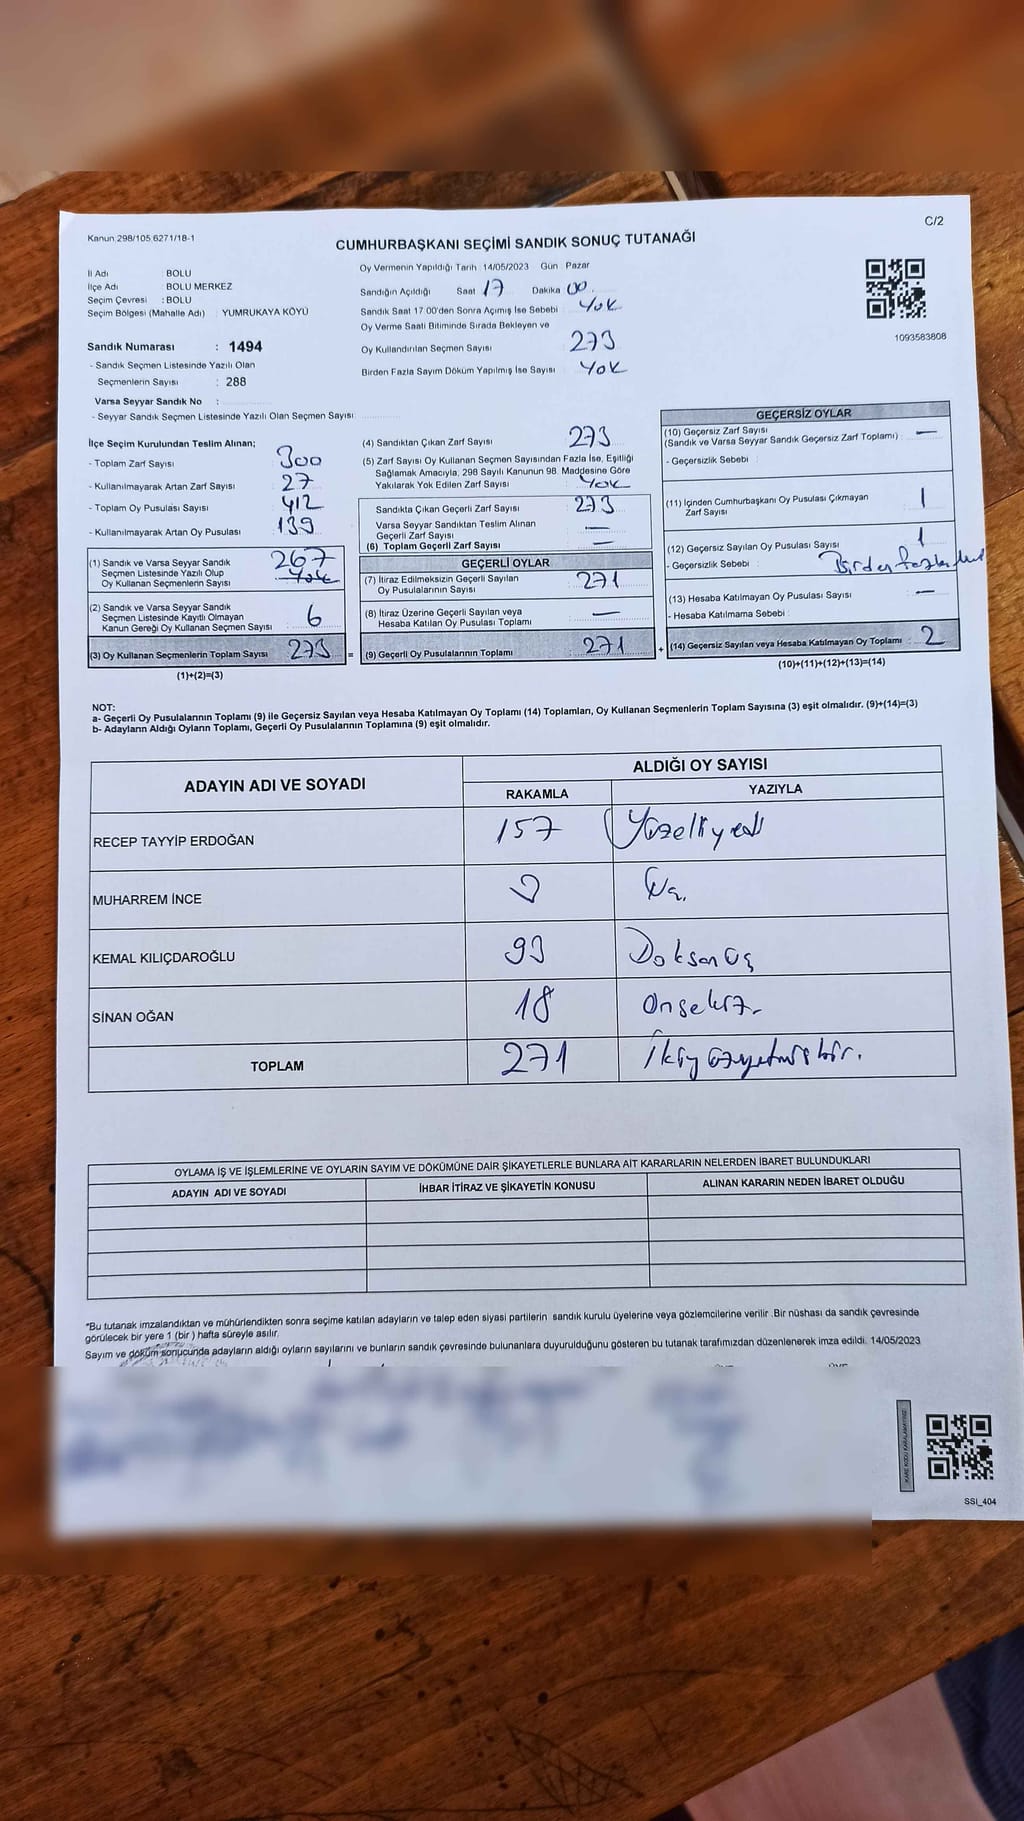 Kanun 298/105 6271/18-1
C/2
CUMHURBAŞKANI SEÇİMİ SANDIK SONUÇ TUTANAĞI
İl Adı : BOLU
İlçe Adı : BOLU MERKEZ
Seçim Çevresi : BOLU
Seçim Bölgesi (Mahalle Adı) : YUMRUKAYA KÖYÜ
Sandık Numarası : 1494
- Sandık Seçmen Listesinde Yazılı Olan
Seçmenlerin Sayısı : 288
Varsa Seyyar Sandık No :
- Seyyar Sandık Seçmen Listesinde Yazılı Olan Seçmen Sayısı
Oy Vermenin Yapıldığı Tarih 14/05/2023 Gün Pazar
Sandığın Açıldığı Saat 17 Dakika 00
Sandık Saat 17 00'den Sonra Açımış İse Sebebi YOK
Oy Verme Saati Bitiminde Sırada Bekleyen ve
Oy Kullandırılan Seçmen Sayısı 273
Birden Fazla Sayım Döküm Yapılmış İse Sayısı YOK
1093583808
İlçe Seçim Kurulundan Teslim Alınan;
- Toplam Zarf Sayısı 300
- Kullanılmayarak Artan Zarf Sayısı 27
- Toplam Oy Pusulası Sayısı 412
- Kullanılmayarak Artan Oy Pusulası 139
(1) Sandık ve Varsa Seyyar Sandık
Seçmen Listesinde Yazılı Olup
Oy Kullanan Seçmenlerin Sayısı 267
(2) Sandık ve Varsa Seyyar Sandık
Seçmen Listesinde Kayıtlı Olmayan
Kanun Gereği Oy Kullanan Seçmen Sayısı 6
(3) Oy Kullanan Seçmenlerin Toplam Sayısı 273 =
(1)+(2)=(3)
(4) Sandıktan Çıkan Zarf Sayısı 273
(5) Zarf Sayısı Oy Kullanan Seçmen Sayısından Fazla İse, Eşitliği
Sağlamak Amacıyla, 298 Sayılı Kanunun 98. Maddesine Göre
Yakılarak Yok Edilen Zarf Sayısı YOK
Sandıkta Çıkan Geçerli Zarf Sayısı 273
Varsa Seyyar Sandıktan Teslim Alınan
Geçerli Zarf Sayısı —
(6) Toplam Geçerli Zarf Sayısı —
GEÇERLİ OYLAR
(7) İtiraz Edilmeksizin Geçerli Sayılan
Oy Pusulalarının Sayısı 271
(8) İtiraz Üzerine Geçerli Sayılan veya
Hesaba Katılan Oy Pusulası Toplamı —
(9) Geçerli Oy Pusulalarının Toplamı 271 +
GEÇERSİZ OYLAR
(10) Geçersiz Zarf Sayısı
(Sandık ve Varsa Seyyar Sandık Geçersiz Zarf Toplamı) : —
- Geçersizlik Sebebi :
(11) İçinden Cumhurbaşkanı Oy Pusulası Çıkmayan
Zarf Sayısı 1
(12) Geçersiz Sayılan Oy Pusulası Sayısı 1
- Geçersizlik Sebebi : Birden fazla
(13) Hesaba Katılmayan Oy Pusulası Sayısı —
- Hesaba Katılmama Sebebi :
(14) Geçersiz Sayılan veya Hesaba Katılmayan Oy Toplamı : 2
(10)+(11)+(12)+(13)=(14)
NOT:
a- Geçerli Oy Pusulalarının Toplamı (9) ile Geçersiz Sayılan veya Hesaba Katılmayan Oy Toplamı (14) Toplamları, Oy Kullanan Seçmenlerin Toplam Sayısına (3) eşit olmalıdır. (9)+(14)=(3)
b- Adayların Aldığı Oyların Toplamı, Geçerli Oy Pusulalarının Toplamına (9) eşit olmalıdır.
ADAYIN ADI VE SOYADI
ALDIĞI OY SAYISI
RAKAMLA YAZIYLA
RECEP TAYYİP ERDOĞAN 157 Yüzelliyedi
MUHARREM İNCE
KEMAL KILIÇDAROĞLU 93 Doksanüç
SİNAN OĞAN 18 Onsekiz
TOPLAM 271 İkiyüzyetmişbir.
OYLAMA İŞ VE İŞLEMLERİNE VE OYLARIN SAYIM VE DÖKÜMÜNE DAİR ŞİKAYETLERLE BUNLARA AİT KARARLARIN NELERDEN İBARET BULUNDUKLARI
ADAYIN ADI VE SOYADI İHBAR İTİRAZ VE ŞİKAYETİN KONUSU ALINAN KARARIN NEDEN İBARET OLDUĞU
*Bu tutanak imzalandıktan ve mühürlendikten sonra seçime katılan adayların ve talep eden siyasi partilerin sandık kurulu üyelerine veya gözlemcilerine verilir .Bir nüshası da sandık çevresinde
görülecek bir yere 1 (bir ) hafta süreyle asılır.
Sayım ve döküm sonucunda adayların aldığı oyların sayılarını ve bunların sandık çevresinde bulunanlara duyurulduğunu gösteren bu tutanak tarafımızdan düzenlenerek imza edildi. 14/05/2023
SSI_404